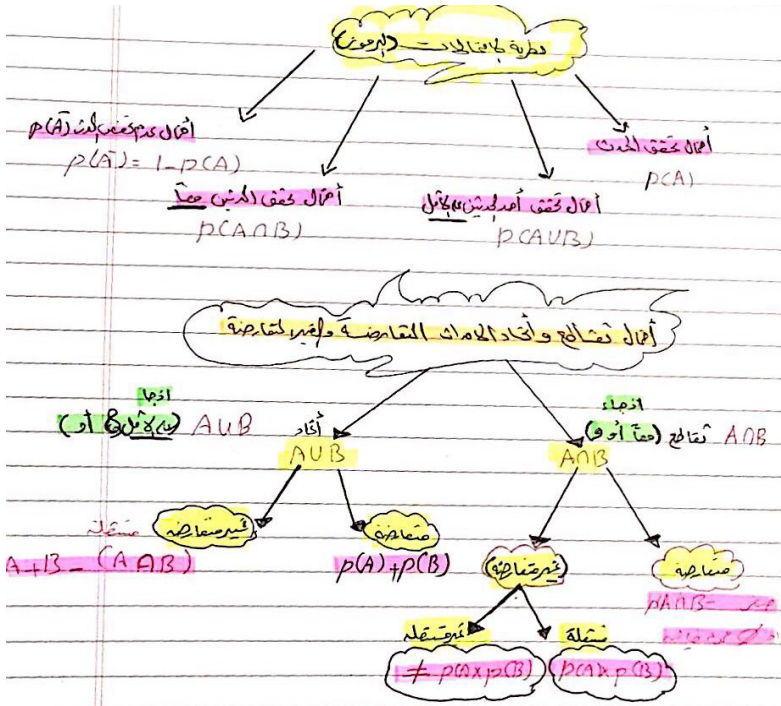 نظرية الاحتمالات (الرموز)
احتمال تحقق الحدث
P(A)
احتمال تحقق أحد الحدثين على الأقل
P(A∪B)
احتمال تحقق الحدثين معاً
P(A∩B)
احتمال عدم تحقق الحدث P(Ā)
P(Ā) = 1 - P(A)
احتمال تقاطع وأتحاد الاحداث المتعارضة والغير متعارضة
A∩B تقاطع (معاً أو و)
A∩B
A∪B (على الأقل أو)
أتحاد
A∪B
متعارضة
P A∩B =
غير متعارضة
متعارضة
P(A) + P(B)
غير متعارضه
مستقله
A + B - (A∩B)
مستقلة
P(A) × P(B)
غير مستقله
≠ P(A) × P(B)